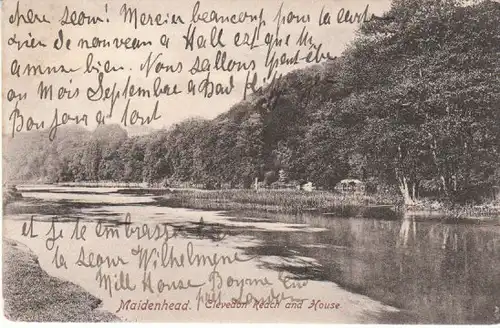 chère soeur! Mercier Beaucoup pour la carte
rien de nouveau a Hall est que tu
amuse bien. Nous sallons peut-être
au Mois September a Bad
Bonjour a tout
et je te embrasse
ta soeur Wilhelmine
Mill House Boyne End
London
Maidenhead. Clevedon Reach and House